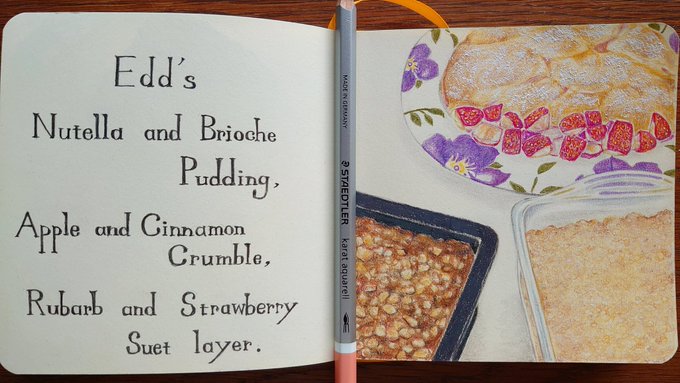 Edd's
Nutella and Brioche
Pudding,
Apple and Cinnamon
Crumble,
Rubarb and Strawberry
Suet layer.
MADE IN GERMANY
STAEDTLER
karat aquarell